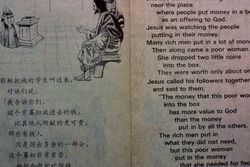 near the place
where people put in money in b
as an offering to God.
Jesus was watching the people
putting in their money,
Many rich men put in a lot of mon
Then along came a poor woman
She dropped two little coins
into the box.
They were worth only about on
Jesus called his followers together
and said to them,
"The money that this poor wo
into the box
has more value to God
than the money
put in by all the others
The rich men put in
what they did not need,
but this poor woman
put in the money
that she needed for foo
耶稣把他的学生叫过来,
对他们说:
“我告诉你们,
这个穷寡妇放进去的钱,
比其他人所献的更可贵。
那些有钱人
只是捐出多余的一部分,
这个寡妇非常穷苦,